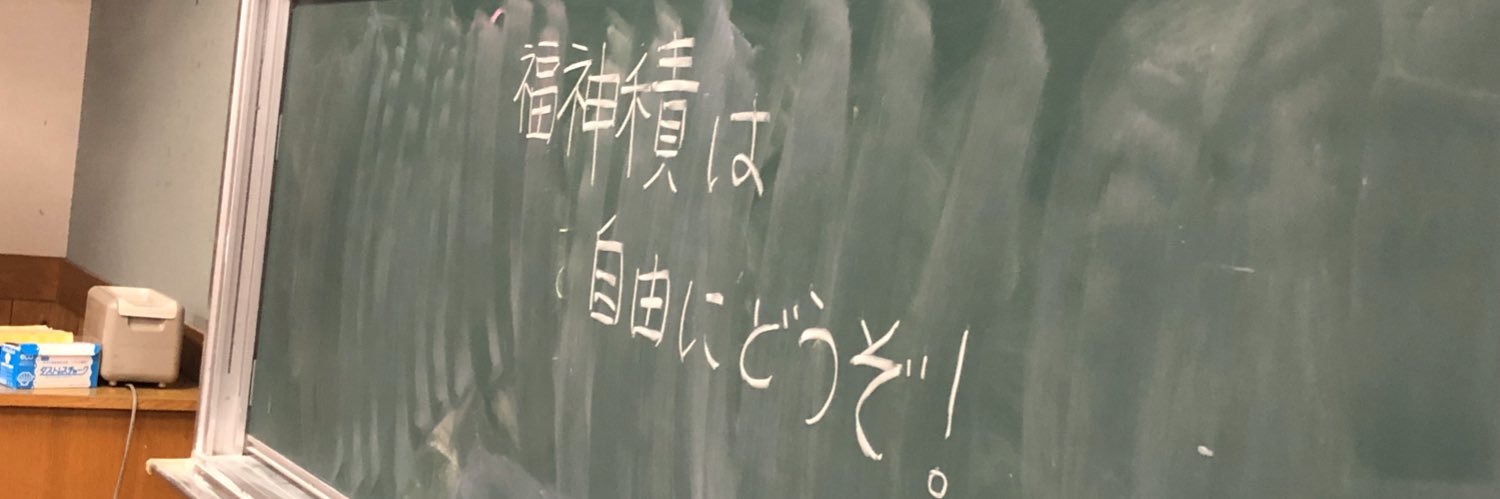 福神積は
自由にどうぞ!
ダストレスチョーク